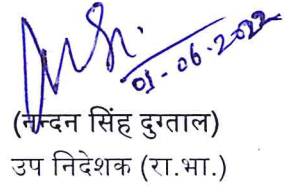 01-06-2022
(नन्दन सिंह दुग्ताल)
उप निदेशक (रा.भा.)